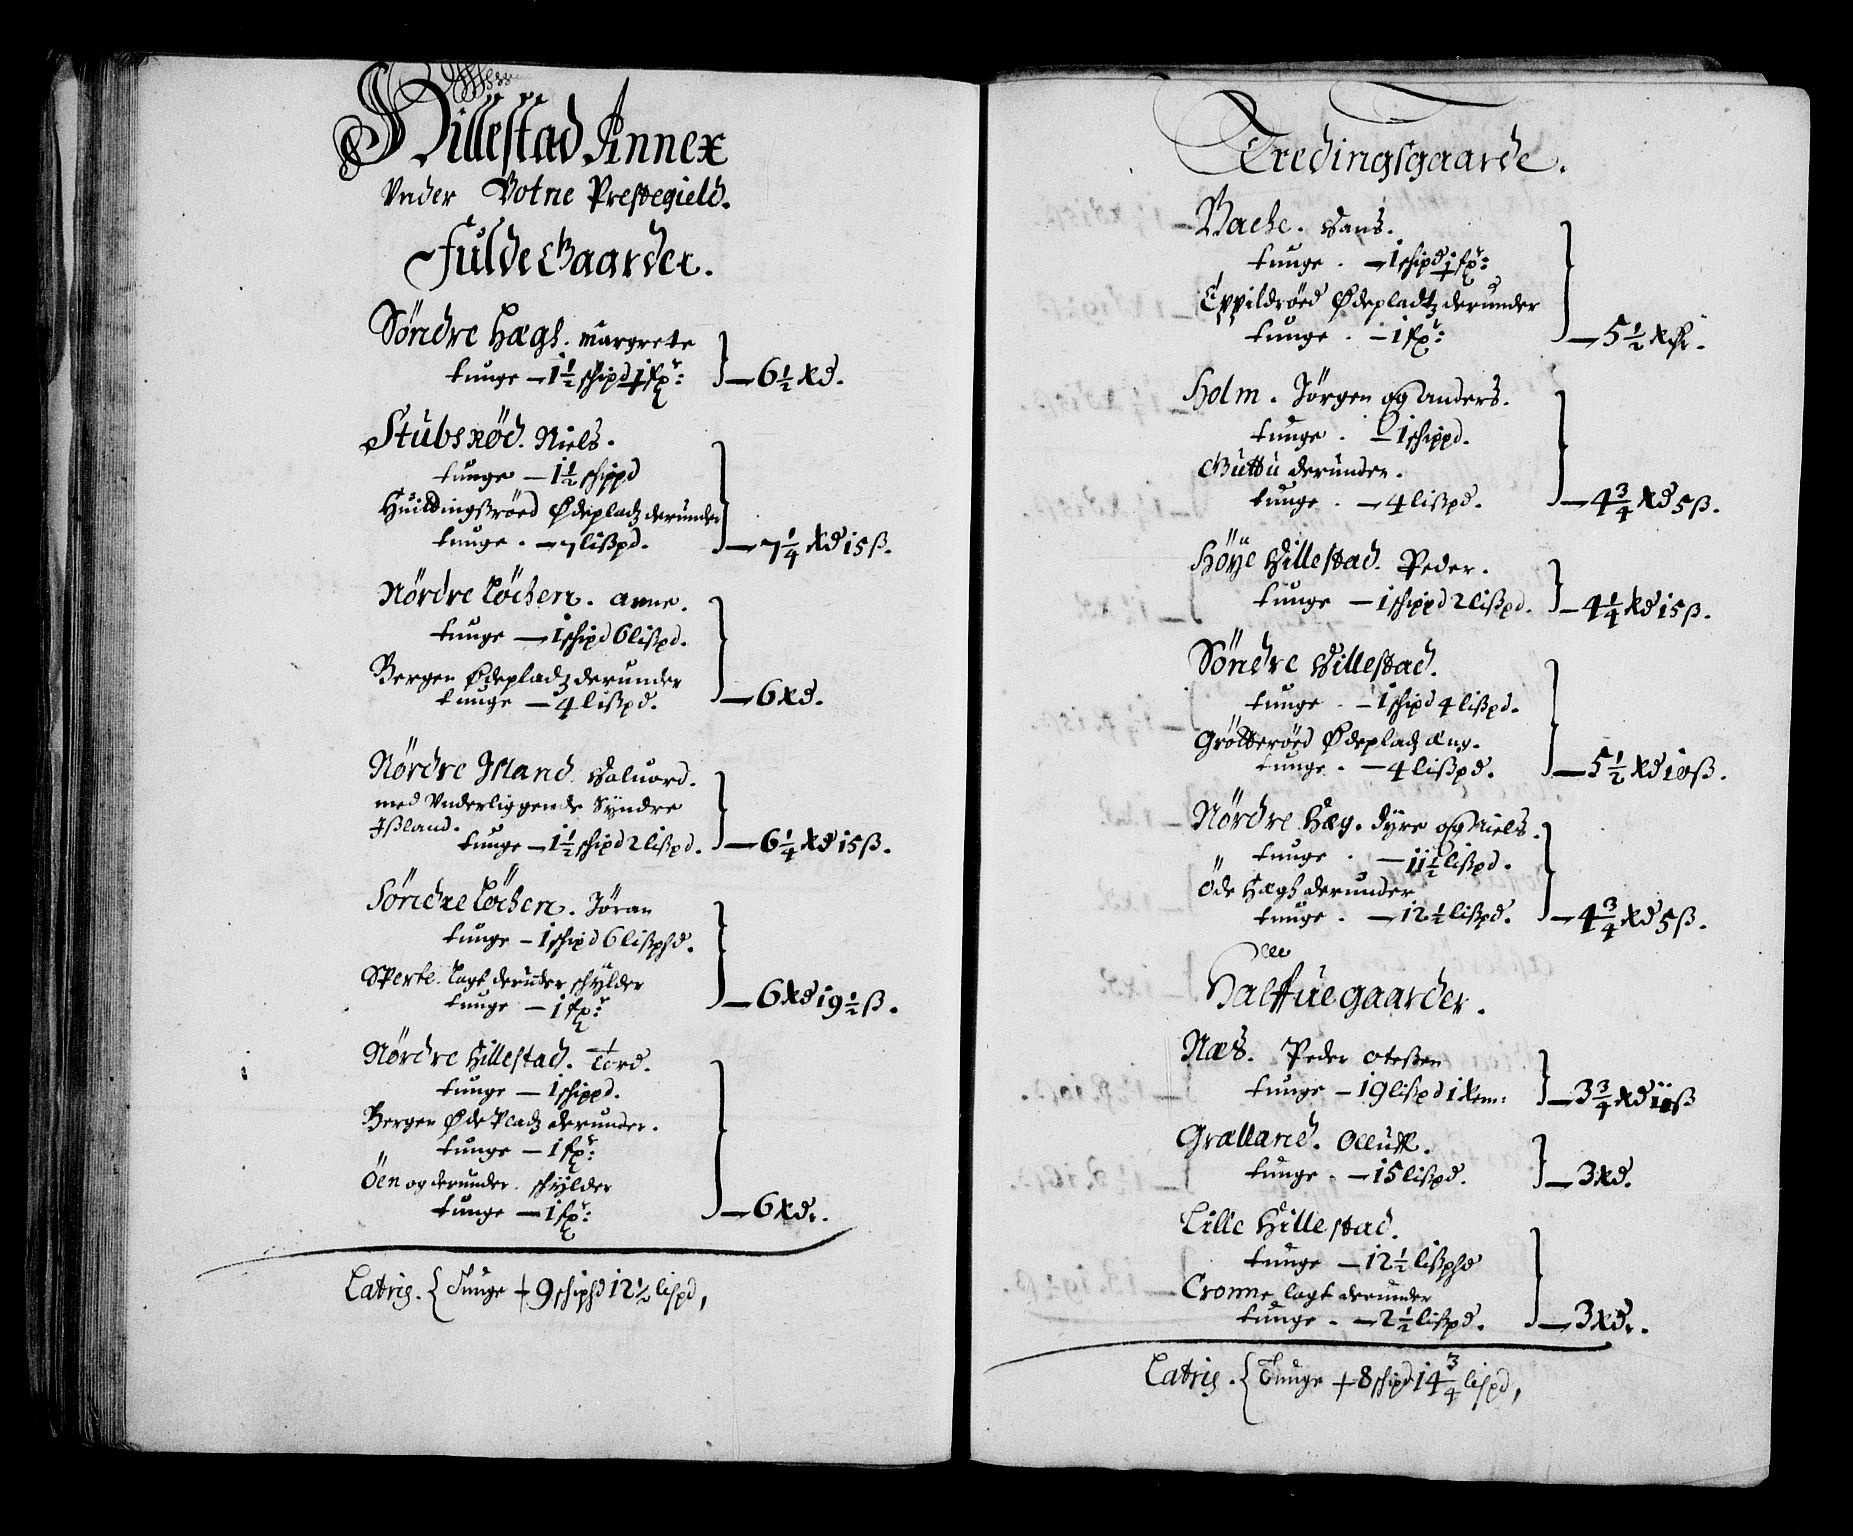 Hillestad Annex
Vnder Botne Prestegield.
Fulde Gaarder.
Söndre Hægs. Margrete
tunge - 1 1/2 schipd 1 fxr: - 6 1/2 Rd.
Stubsröd. Niels.
tunge - 1 1/2 schippd
Huildingsröed Ødepladz derunder
tunge. - 7 lißpd. - 7 1/4 Rd 15 ß.
Nördre Löchen. Anne.
tunge - 1 schipd 6 lißpd.
Bergen Ødepladz derunder
tunge - 4 lißpd. - 6 Rd.
Nördre Island Haluord.
med Vnderliggende Syndre
Ißland.
tunge - 1 1/2 schipd 2 lißpd. - 6 1/4 Rd 15 ß.
Söndre Löchen. Jöran
tunge - 1 schipd 6 lißphd.
Sperte. lagt derunder schylder
tunge - 1 fxr: - 6 Rd 19 1/2 ß.
Nördre Hillestad. Tord.
tunge - 1 schippd.
Bergen Øde Pladz derunder.
tunge - 1 fxr:
Öen og derunder. schylder
tunge - 1 fxr: - 6 Rd.
Latris. { Tunge + 9 schiphd 12 1/2 lispd,
Tredingsgaarde.
Bache. Hans.
tunge. - 1 schipd 1 fxr:
Eppildröed Ødepladtz derunder
tunge. - 1 fxr: - 5 1/2 Rdr.
Holm. Jörgen og Anders.
tunge. - 1 schippd.
Buttu derunder.
tunge. - 4 lißpd. - 4 3/4 Rd 5 ß.
Höye Hillestad. Peder.
tunge - 1 schippd 2 lißpd. - 4 1/4 Rd 15 ß.
Söndre Hillestad.
tunge. - 1 schipd 4 lißpd.
Grötteröed Ødepladz Æng.
tunge. - 4 lißpd. - 5 1/2 Rd 10 ß.
Nördre Hæg. Dyre og Niels.
tunge. - 11 1/2 lißpd.
Öde Hægs derunder
tunge. - 12 1/2 lißpd. - 4 3/4 Rd 5 ß.
Halffue gaarder.
Næs. Peder Oteßen
tunge - 19 lißpd 1 Rem: - 3 3/4 Rd 10 ß
Grælland. Olluff.
tunge. - 15 lißpd. - 3 Rd.
Lille Hillestad.
tunge - 12 1/2 lißphd
Cronne lagt derunder
tunge. - 2 1/2 lißpd. - 3 Rd.
Latris. { Tunge + 8 schipd 14 3/4 lispd,